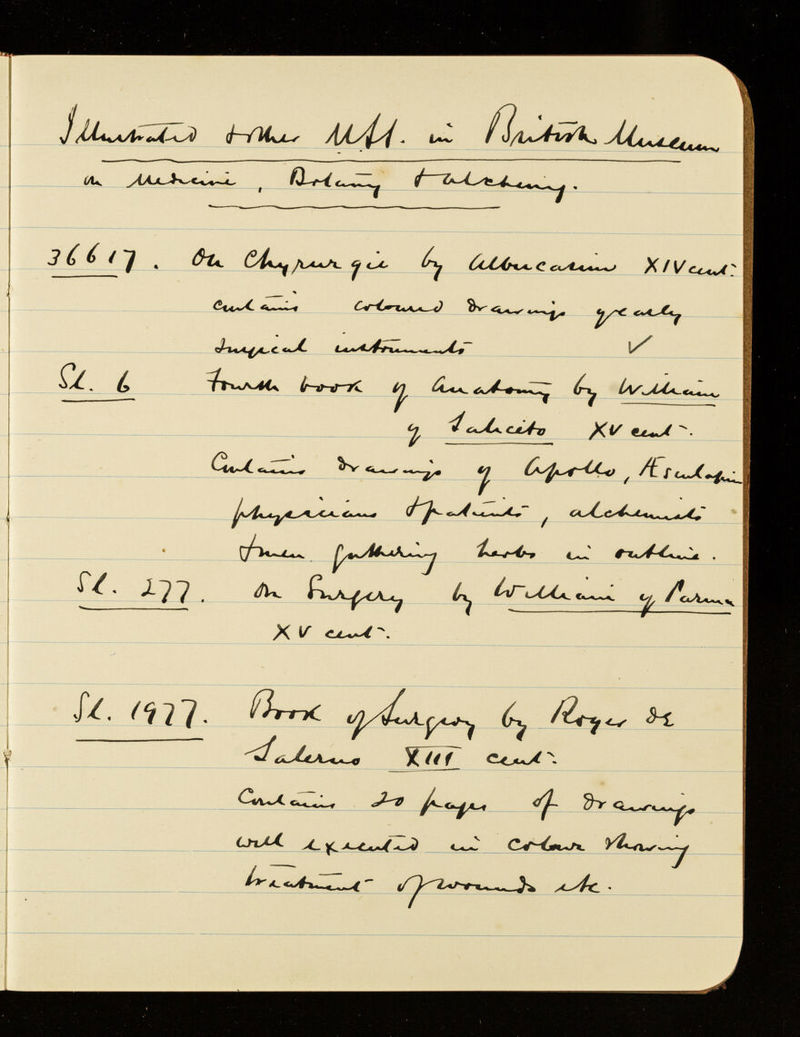 Illustrated & other MSS. in British Museum
on Medicine, Botany & Alchemy.
36617. On Chyrurgie by Albucasim XIV cent.
contains coloured drawings
surgical instruments ✓
Sl. 6 Fourth book of Anatomy by William
of Saliceto XV cent.
Contains drawings of Apollo, Æsculapius
physicians & patients, alchemists
& men gathering herbs in outline.
Sl. 277. On Surgery by William of Parma
XV cent.
Sl. 1977. Book of Surgery by Roger de
Salerno XIII cent.
Contains 20 pages of drawings
well executed in colour showing
treatment of wounds etc.